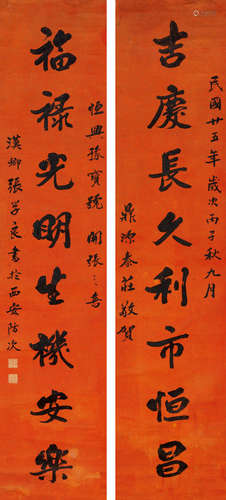 民國廿五年歲次丙子秋九月
吉慶長久利市恒昌
鼎源泰莊敬賀
恒興豫寶號 開張之喜
福祿光明生機安樂
漢卿張學良書於西安防次